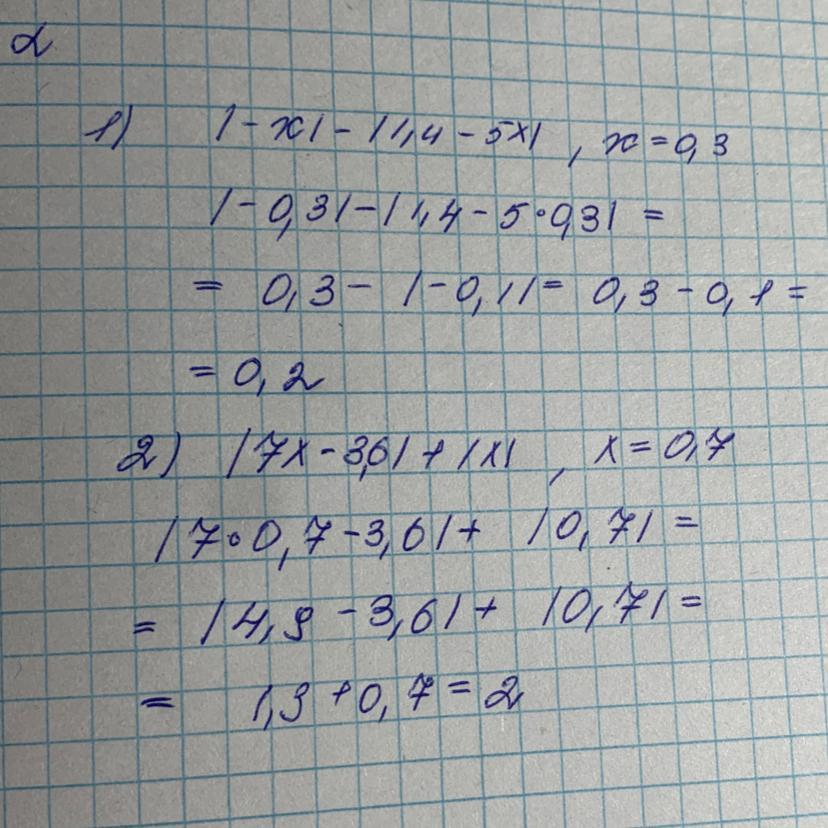 2
1) |-x| - |1,4 - 5x|, x = 0,3
|-0,3| - |1,4 - 5·0,3| =
= 0,3 - |-0,1| = 0,3 - 0,1 =
= 0,2
2) |7x - 3,6| + |x|, x = 0,7
|7·0,7 - 3,6| + |0,7| =
= |4,9 - 3,6| + |0,7| =
= 1,3 + 0,7 = 2